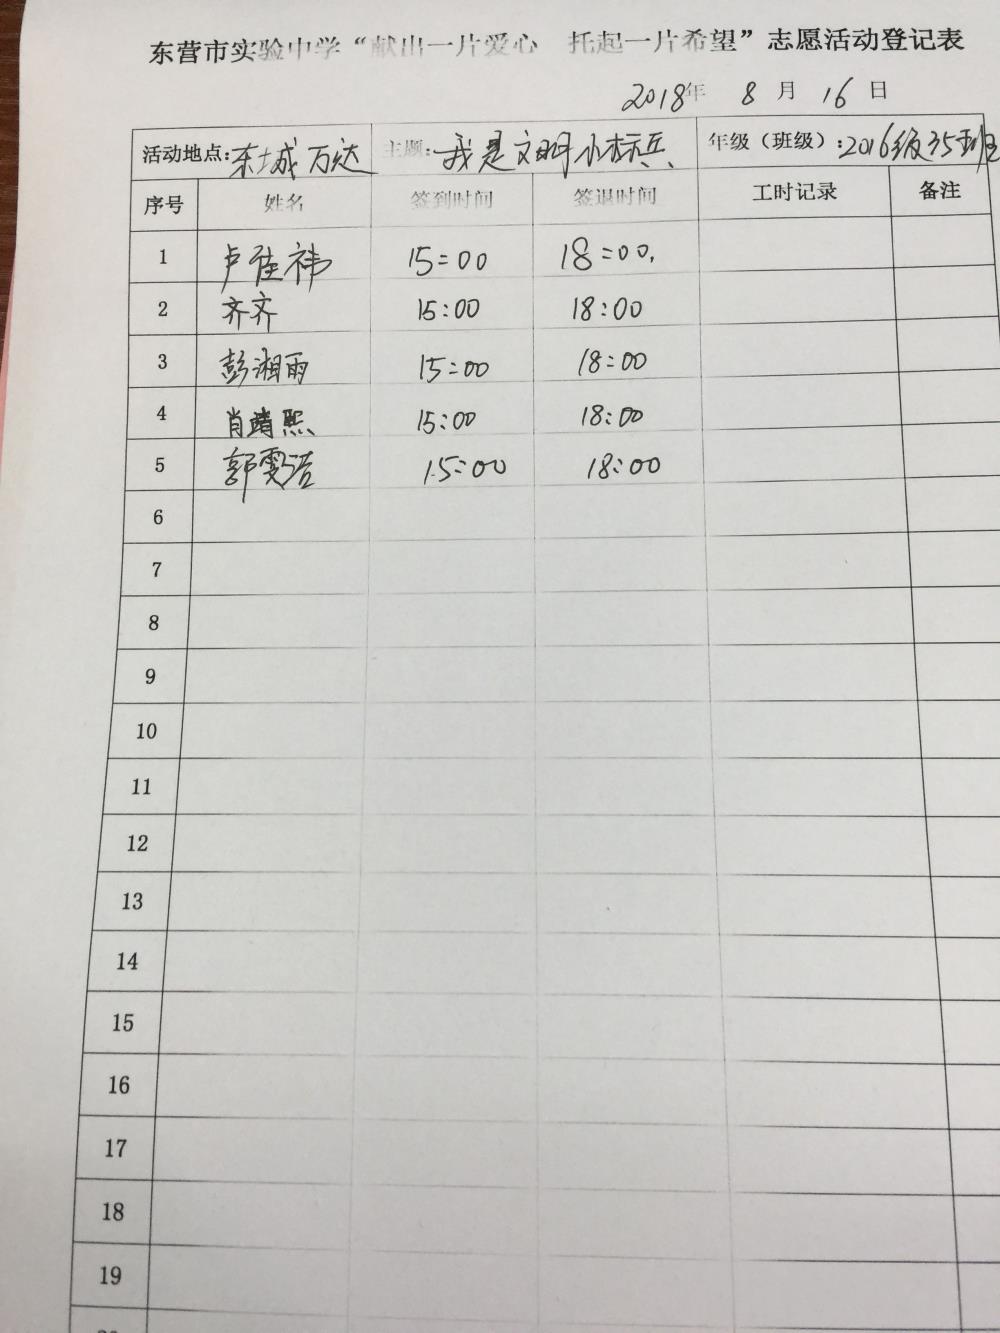 东营市实验中学“献出一片爱心 托起一片希望”志愿活动登记表
2018年 8月 16日
活动地点:东城万达 主题:我是文明小标兵 年级（班级）:2016级35班
序号 姓名 签到时间 签退时间 工时记录 备注
1 卢佳祎 15:00 18:00.
2 齐齐 15:00 18:00
3 彭湘雨 15:00 18:00
4 肖靖熙 15:00 18:00
5 郭雯洁 15:00 18:00
6
7
8
9
10
11
12
13
14
15
16
17
18
19